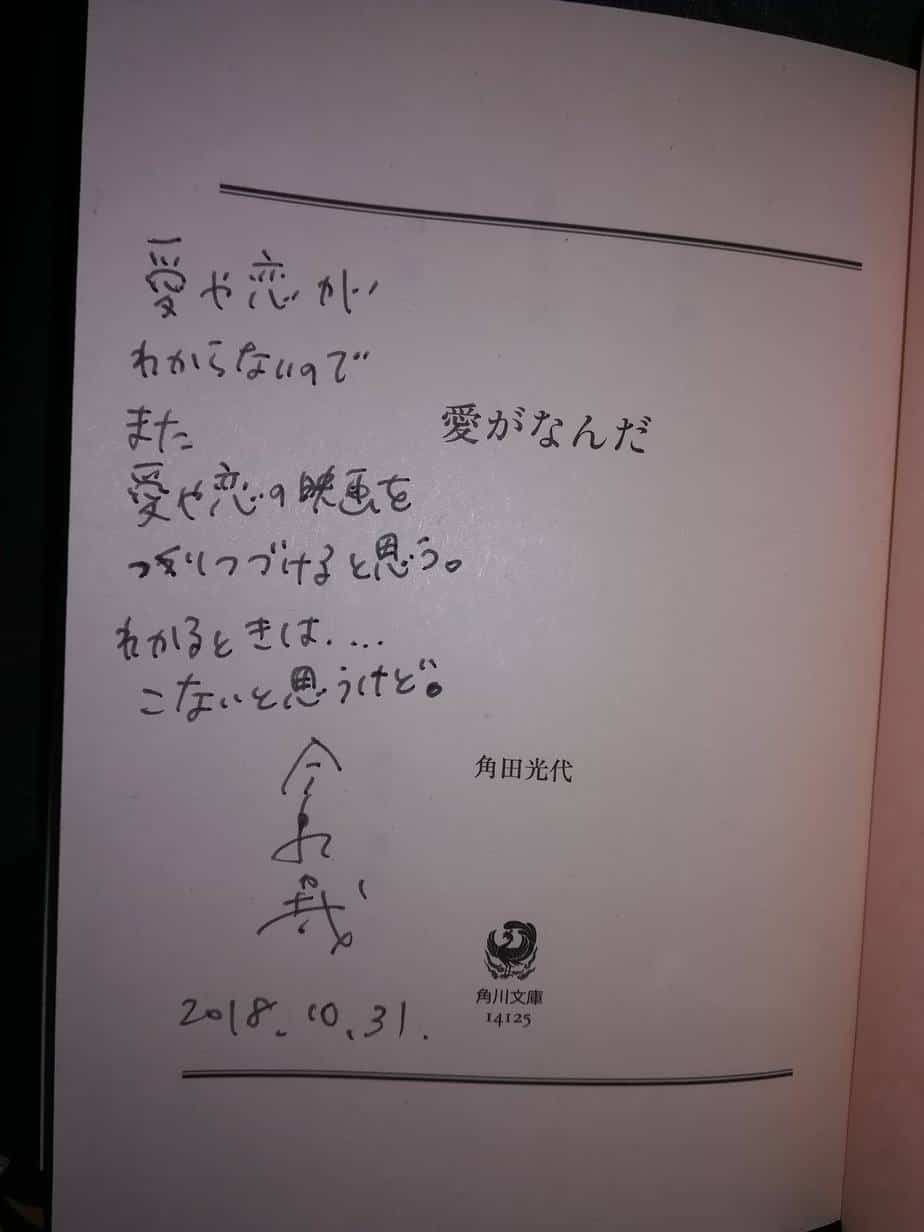 愛や恋が
わからないので
また
愛や恋の映画を
つくりつづけると思う。
わかるときは....
こないと思うけど。
今泉力哉
2018.10.31.
愛がなんだ
角田光代
角川文庫
14125